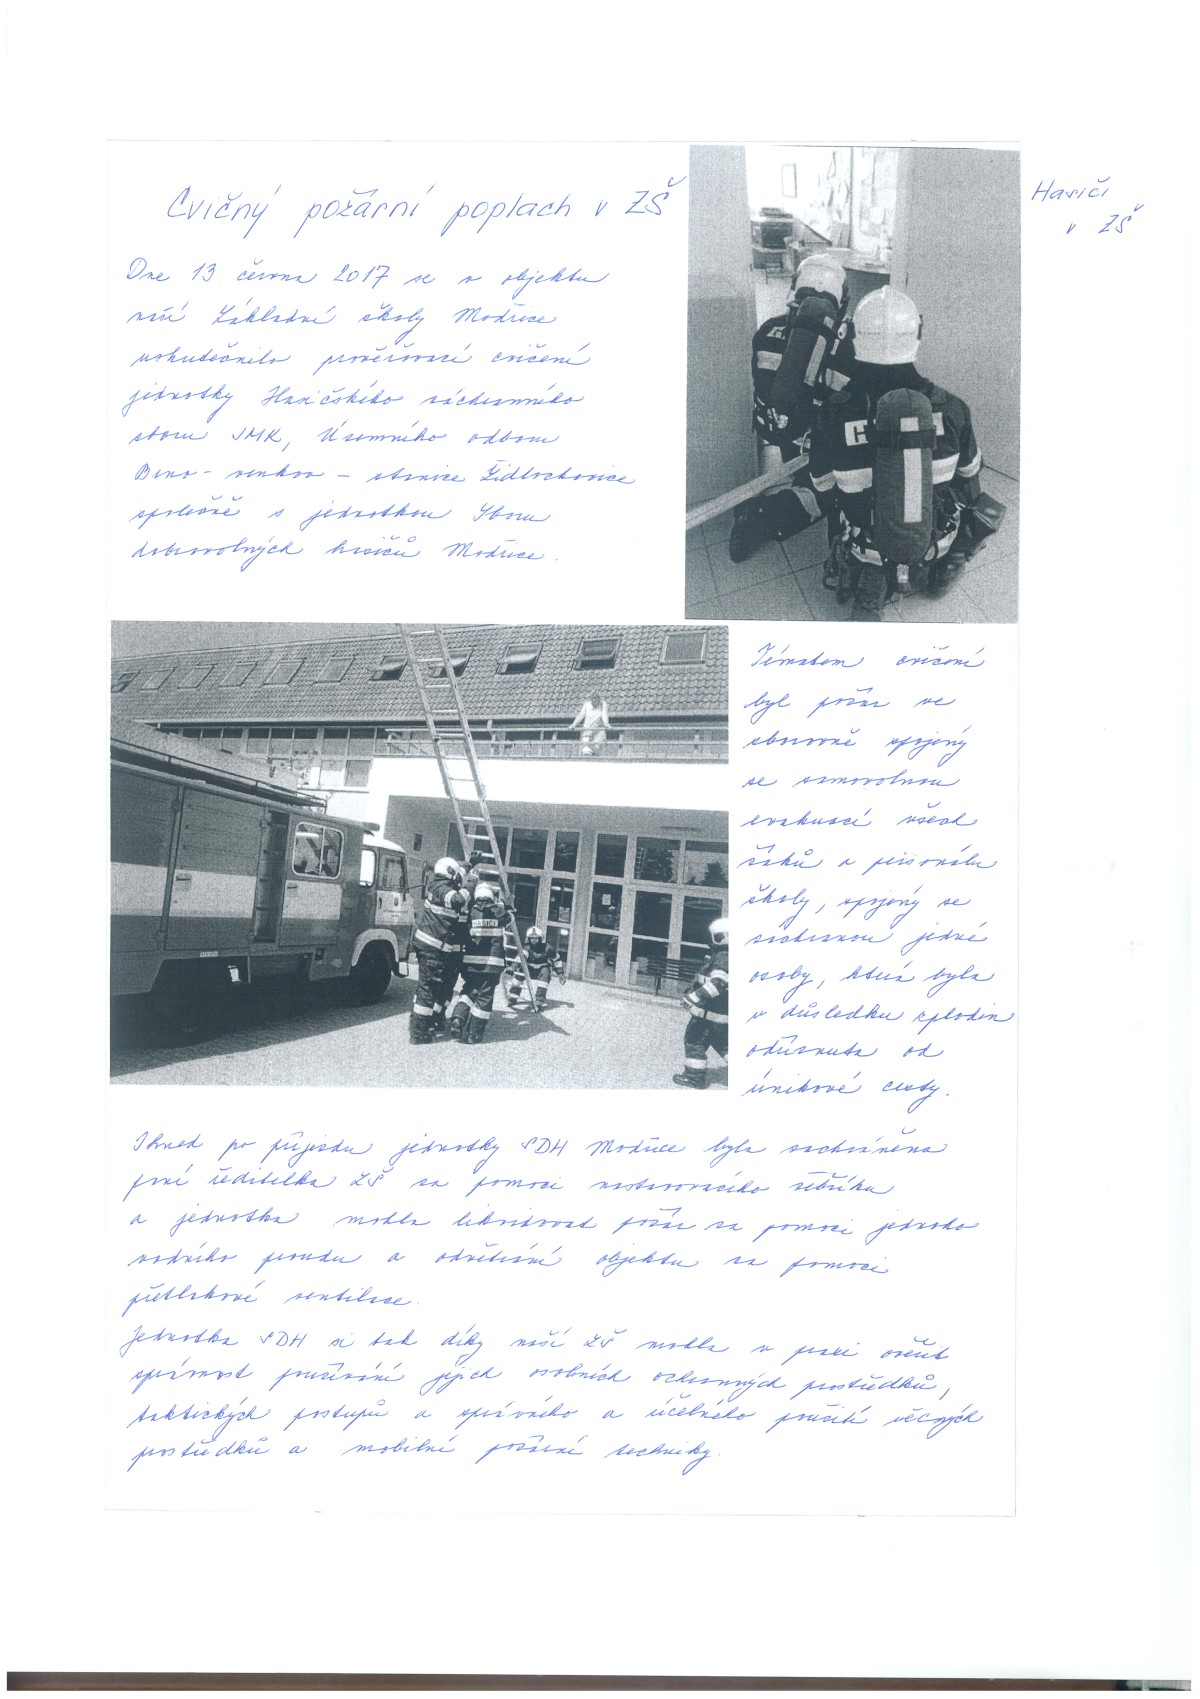 Cvičný požární poplach v ZŠ
Hasiči
v ZŠ
Dne 13. června 2017 se v objektu
naší Základní školy Modřice
uskutečnilo prověřovací cvičení
jednotky Hasičského záchranného
sboru JMK, Územního odboru
Brno - venkov - stanice Židlochovice
společně s jednotkou Sboru
dobrovolných hasičů Modřice.
Tématem cvičení
byl požár ve
sborovně spojený
se samovolnou
evakuací všech
žáků a personálu
školy, spojený se
záchranou jedné
osoby, která byla
v důsledku zplodin
odříznuta od
únikové cesty.
Ihned po příjezdu jednotky SDH Modřice byla zachráněna
paní ředitelka ZŠ za pomoci nastavovacího žebříku
a jednotka mohla likvidovat požár za pomoci jednoho
vodního proudu a odvětrání objektu za pomoci
přetlakové ventilace.
Jednotka SDH si tak díky naší ZŠ mohla v praxi ověřit
správnost používání jejich osobních ochranných prostředků,
taktických postupů a správného a účelného použití věcných
prostředků a mobilní požární techniky.